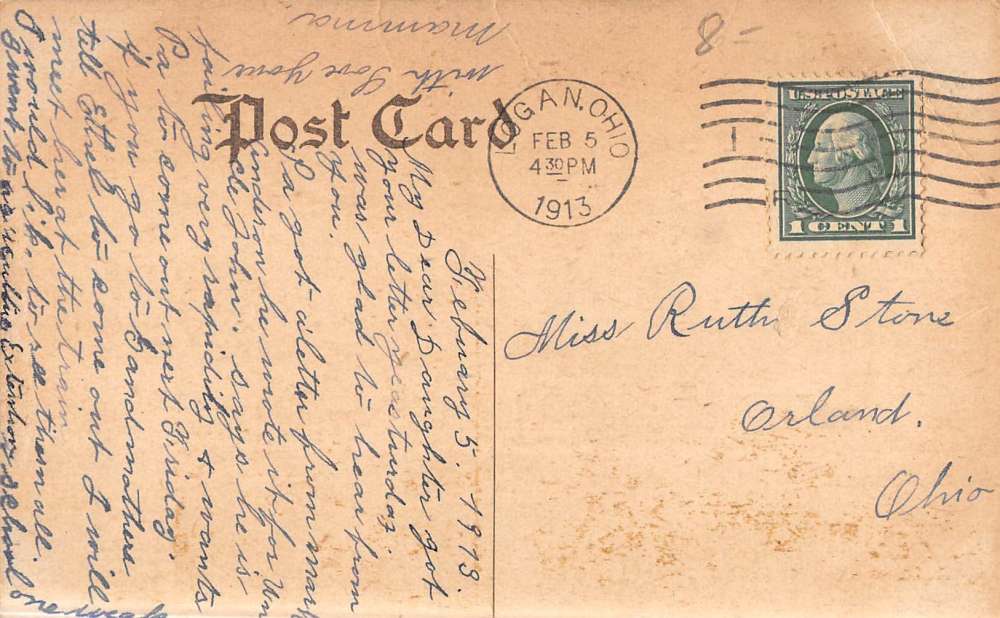 Post Card
LOGAN, OHIO
FEB 5
4 30 PM
1913
U.S. POSTAGE
1 CENT 1
-8
Miss Ruth Stone
Orland.
Ohio
Febuary 5. 1913.
My Dear Daughter got
your letter yeasturday.
was glad to hear from
you.
Pa got a letter from mark
anderson he wrote it for Un
cle John. says he is
failing very rapidly & wants
Pa to come out next Friday.
if you go to Gandmothers
tell Ethel to come out I will
meet her at the train
I would like to see them all.
I want to agriculture Extenhon school
one weak
with Love your
mamma